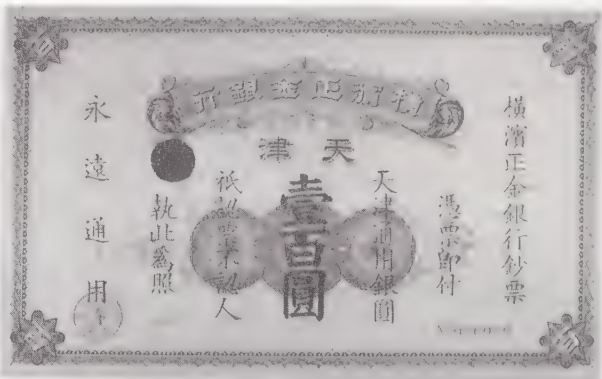 橫濱正金銀行
天津
橫濱正金銀行鈔票
憑票即付
天津通用銀圓
壹百圓
祇認票不認人
執此爲照
永遠通用
百
百